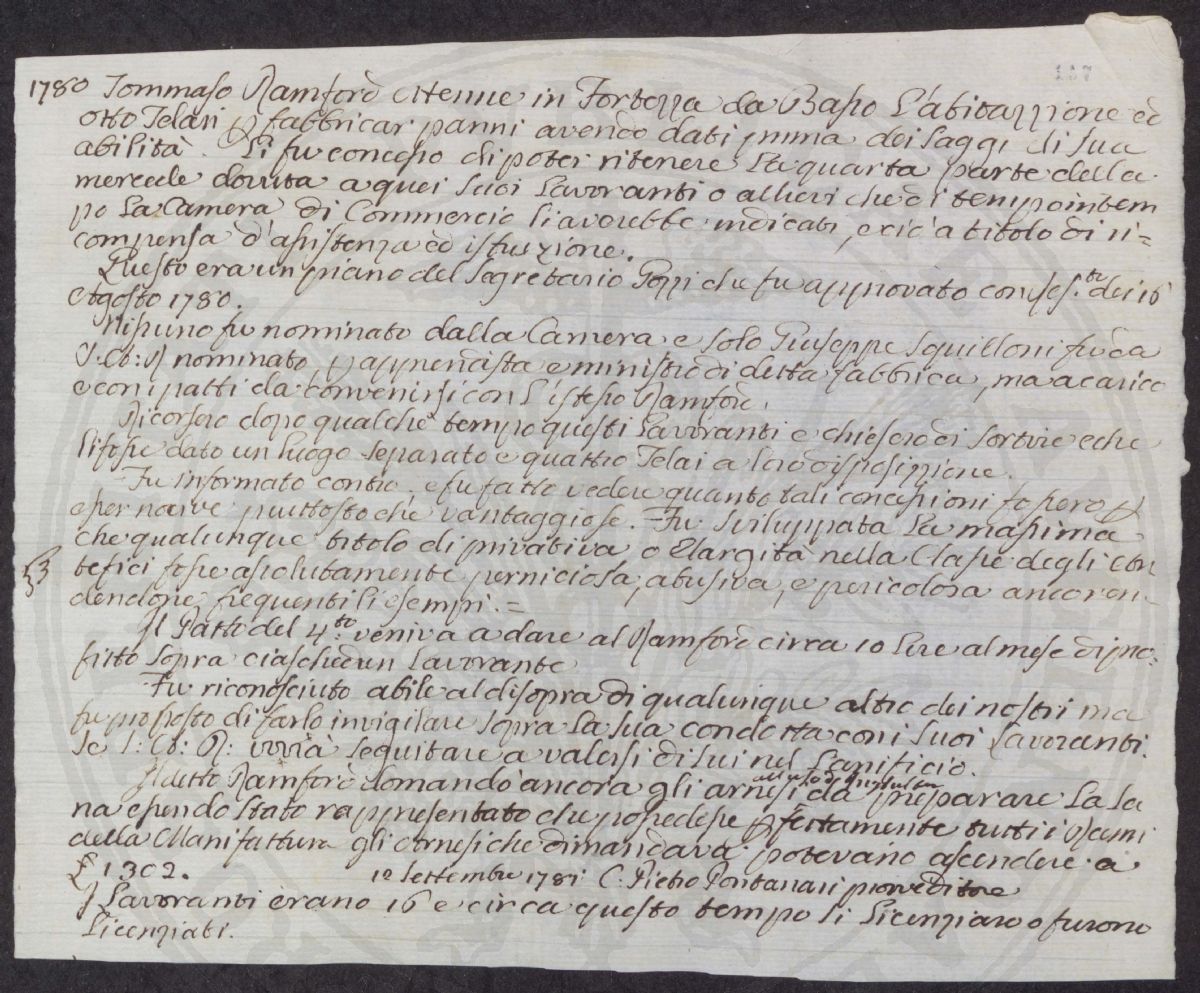 157
1780 Tommaso Ramford ottenne in Fortezza da Basso L'abitazzione ed
otto Telari p fabbricar panni avendo dati prima dei Saggi di sua
abilità. Li fu concesso di poter ritenere La quarta parte della
mercede dovuta a quei suoi Lavoranti o allievi che di tempo in tem
po La Camera di Commercio li averebbe indicati, e ciò a titolo di ri=
compensa d'assistenza ed istruzione.
Questo era un piano del Segretario Pozzi che fu approvato con dei 16
Agosto 1780.
Nissuno fu nominato dalla Camera e solo Giuseppe Squilloni fu da
nominato, p apprendista e ministro di detta fabbrica, ma a carico
e con patti da convenirsi con L'istesso Ramford.
Ricorsero dopo qualche tempo questi Lavoranti e chiesero di sortire e che
li fosse dato un luogo separato e quattro Telai a loro disposizzione.
Fu informato contro, e fu fatto vedere quanto tali concessioni fossero p
esser nocive piuttosto che vantaggiose. Fu sviluppata La massima
che qualunque titolo di privativa o Elargità nella Classe degli Ar
tefici fosse assolutamente perniciosa, abusiva, e pericolosa
frequenti li esempi.=
Il Patto del 4.to veniva a dare al Ramford circa 10 Lire al mese di pro=
fitto sopra ciaschedun Lavorante
Fu riconosciuto abile al disopra di qualunque altro dei nostri ma
fu proposto di farlo invigilare sopra La sua condotta con i suoi Lavoranti
se seguitare a valersi di Lui nel Lanificio.
Il detto Ramford domandò ancora gli arnesi da preparare La La
na essendo stato rappresentato che possedesse pfettamente tutti i Rami
della Manifattura gli Arnesi che dimandava potevano ascendere a
£ 1302. 12 Settembre 1781 C. Pietro Pontanari provveditore
I Lavoranti erano 16 e circa questo tempo si Licenziaro o furono
Licenziati.